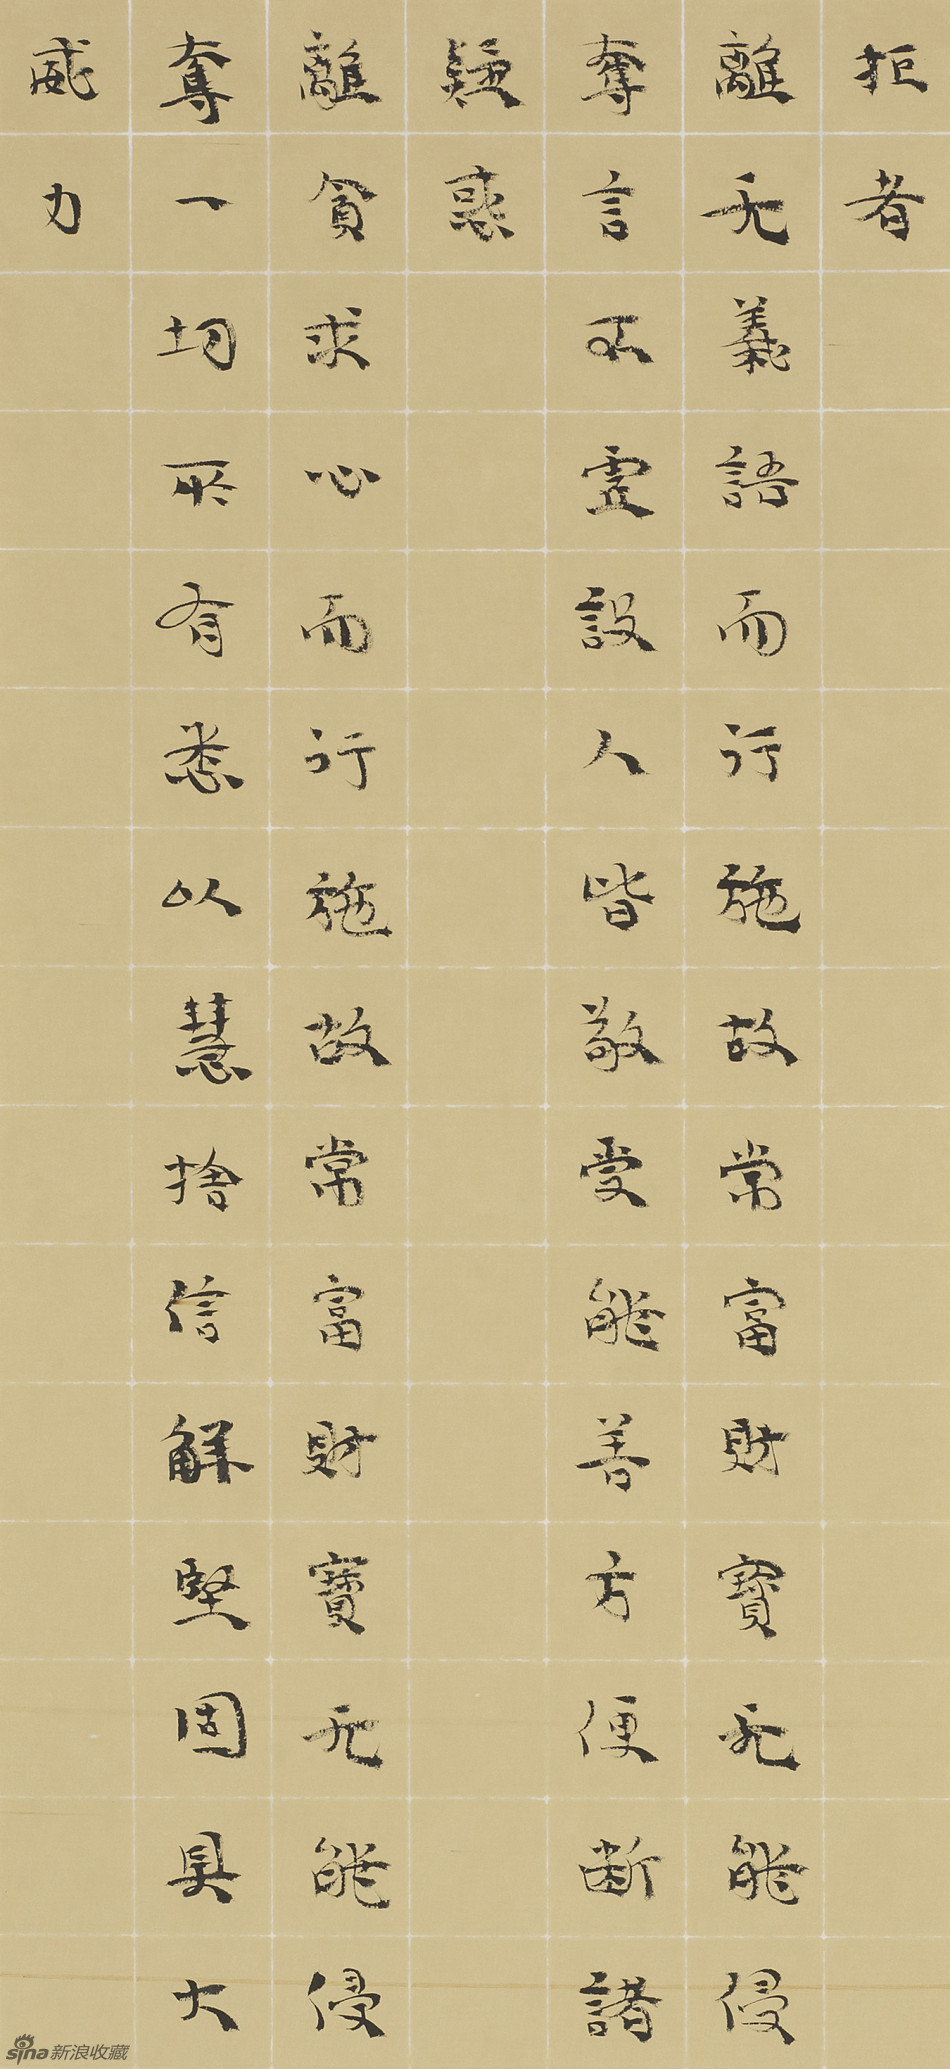 拒者
離无義語而行施故常富財寶无能侵
奪言不虛設人皆敬受能善方便斷諸
疑惑
離貪求心而行施故常富財寶无能侵
奪一切所有悉以慧捨信解堅固具大
威力
sina新浪收藏